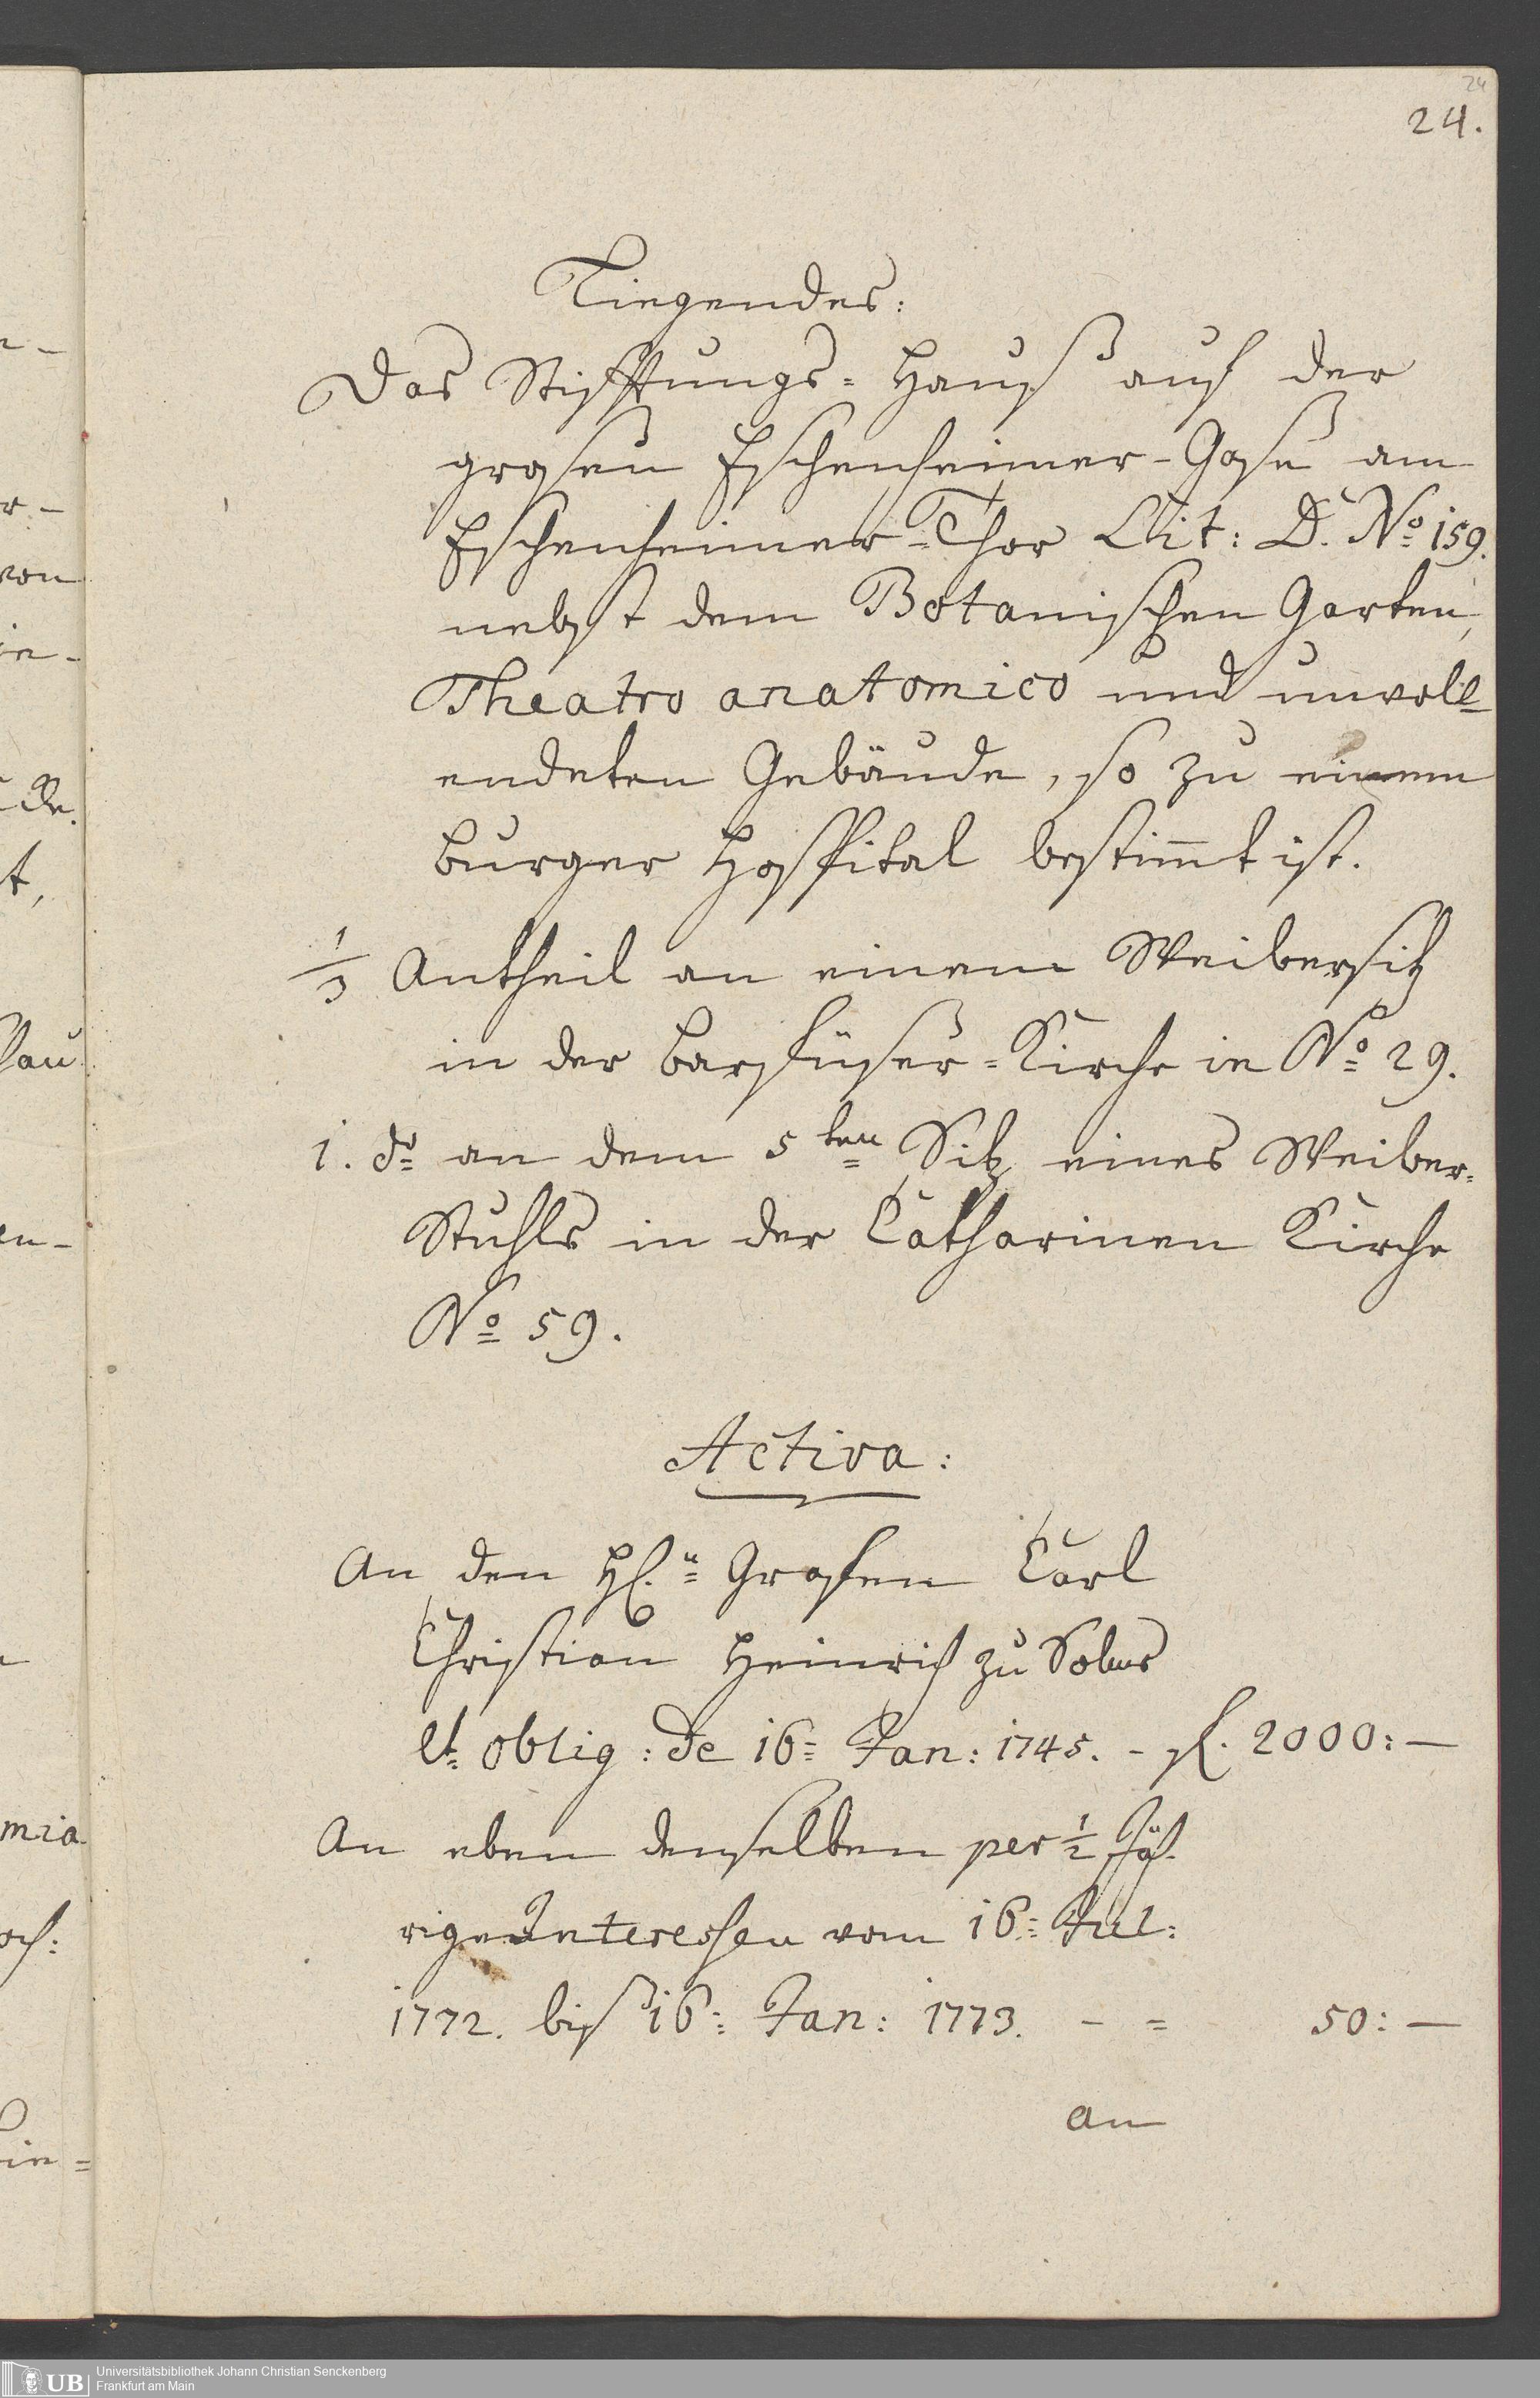 24
24.
Liegendes:
Das Stifftungs= Hauß auf der
grosen Eschenheimer-Gaße am
Eschenheimer=Thor Lit: D. No 159.
nebst dem Botanischen Garten,
Theatro anatomico und unvoll=
endeten Gebäude, so zu einem
Burger Hospital bestim̅t ist.
1/3 Antheil an einem Weibersitz
in der Barfüser=Kirche in No 29.
1. do an dem 5ten Sitz eines Weiber=
Stuhls in der Catharinen Kirche
No 59.
Activa:
An den H. n Grafen Carl
Christian Heinrich zu Solms
lt oblig: de 16= Jan: 1745. - f. 2000:—
An eben denselben per 1/2 Jäh-
rige Interessen vom 16= Jul:
1772. biß 16= Jan: 1773. - = 50:—
an
Universitätsbibliothek Johann Christian Senckenberg
Frankfurt am Main
UB